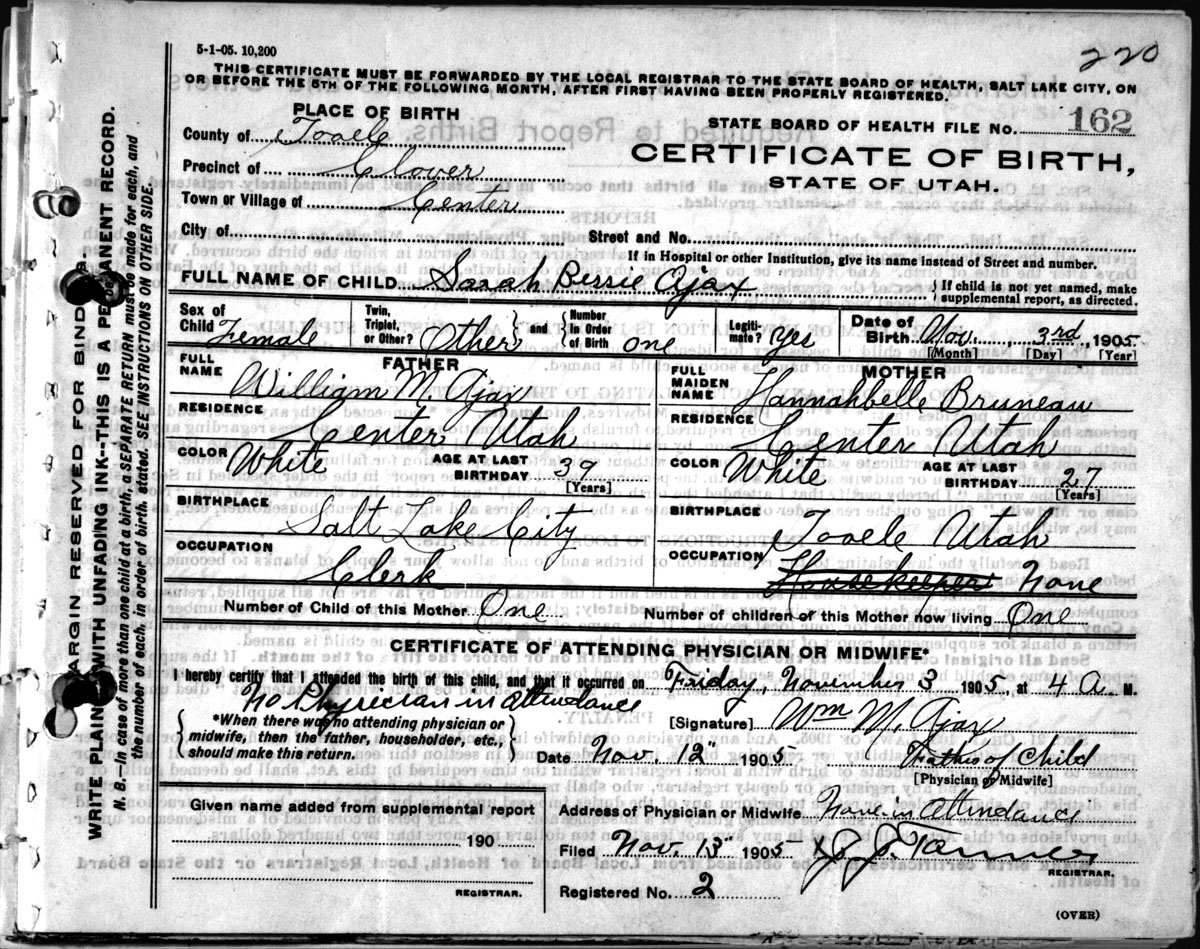 220
5-1-05. 10,200
THIS CERTIFICATE MUST BE FORWARDED BY THE LOCAL REGISTRAR TO THE STATE BOARD OF HEALTH, SALT LAKE CITY, ON
OR BEFORE THE 5TH OF THE FOLLOWING MONTH, AFTER FIRST HAVING BEEN PROPERLY REGISTERED.
PLACE OF BIRTH
STATE BOARD OF HEALTH FILE NO. 162
County of Tooele
CERTIFICATE OF BIRTH,
STATE OF UTAH.
Precinct of Clover
Town or Village of Center
City of Street and No.
If in Hospital or other Institution, give its name instead of Street and number.
FULL NAME OF CHILD Sarah Bessie Ajax } If child is not yet named, make
supplemental report, as directed.
Sex of Child Female
Twin, Triplet, or Other? Other } and { Number In Order of Birth one
Legitimate? Yes
Date of Birth Nov. 3rd, 1905
[Month] [Day] [Year]
FATHER
FULL NAME William M. Ajax
RESIDENCE Center Utah
COLOR White AGE AT LAST BIRTHDAY 39
[Years]
BIRTHPLACE Salt Lake City
OCCUPATION Clerk
MOTHER
FULL MAIDEN NAME Hannahbelle Bruneau
RESIDENCE Center Utah
COLOR White AGE AT LAST BIRTHDAY 27
[Years]
BIRTHPLACE Tooele Utah
OCCUPATION Housekeeper None
Number of Child of this Mother One Number of children of this Mother now living One
CERTIFICATE OF ATTENDING PHYSICIAN OR MIDWIFE*
I hereby certify that I attended the birth of this child, and that it occurred on Friday, November 3 1905, at 4 A M.
No Physician in attendance
{ *When there was no attending physician or
midwife, then the father, householder, etc.,
should make this return. }
[Signature] Wm M. Ajax
Date Nov. 12" 1905 Father of Child
[Physician or Midwife]
Given name added from supplemental report
190
REGISTRAR.
Address of Physician or Midwife None in attendance
Filed Nov. 13" 1905 J. J. Tanner
REGISTRAR.
Registered No. 2
(OVER)
MARGIN RESERVED FOR BINDING.
WRITE PLAINLY WITH UNFADING INK--THIS IS A PERMANENT RECORD.
N. B.--In case of more than one child at a birth, a SEPARATE RETURN must be made for each, and
the number of each, in order of birth, stated. SEE INSTRUCTIONS ON OTHER SIDE.